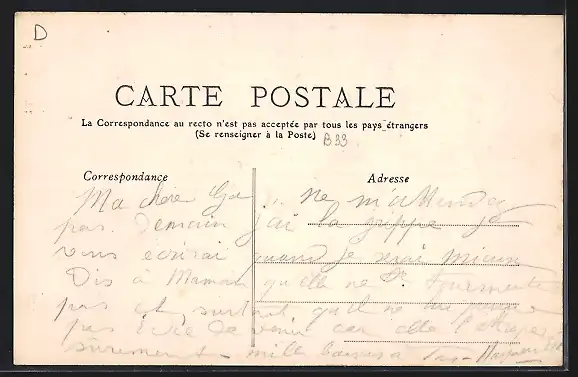 D
CARTE POSTALE
La Correspondance au recto n'est pas acceptée par tous les pays étrangers
(Se renseigner à la Poste) B 93
Correspondance
Adresse
Ma chère ne m'attendez
pas demain j'ai la grippe je
vous écrirai quand je serai mieux
Dis à Maman qu'elle ne se tourmente
pas et surtout qu'il ne lui
pas de venir car elle l'
sûrement - mille baisers à